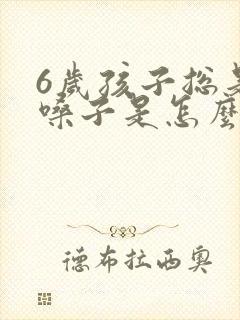 6歲孩子總是
嗓子是怎麼
德布拉西奧